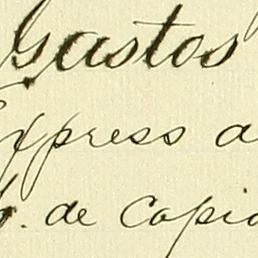 Gastos
Express a
de Copia